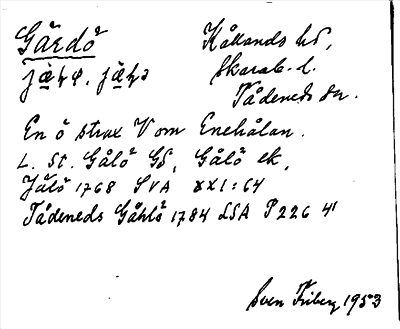 Gärdö
Kållands hd,
Skarab. l.
Tådeneds sn.
En ö strax V om Enehålan.
L. St. Gålö GS, Gålö ek,
Jälö 1768 SVA XXI:64
Tådeneds Gåhlö 1784 LSA P226 41
Sven Friberg 1953